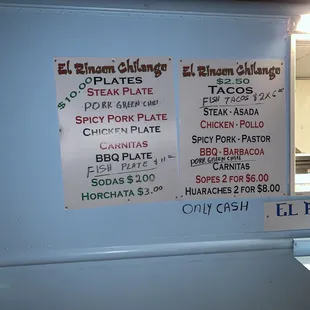 El Rincon Chilango
$10.00 PLATES
STEAK PLATE
PORK GREEN CHILI
SPICY PORK PLATE
CHICKEN PLATE
CARNITAS
BBQ PLATE
FISH PLATE $11
SODAS $2.00
HORCHATA $3.00
El Rincon Chilango
$2.50
TACOS
FISH TACOS $2x6
STEAK - ASADA
CHICKEN - POLLO
SPICY PORK - PASTOR
BBQ - BARBACOA
PORK GREEN CHILI
CARNITAS
SOPES 2 FOR $6.00
HUARACHES 2 FOR $8.00
ONLY CASH
EL